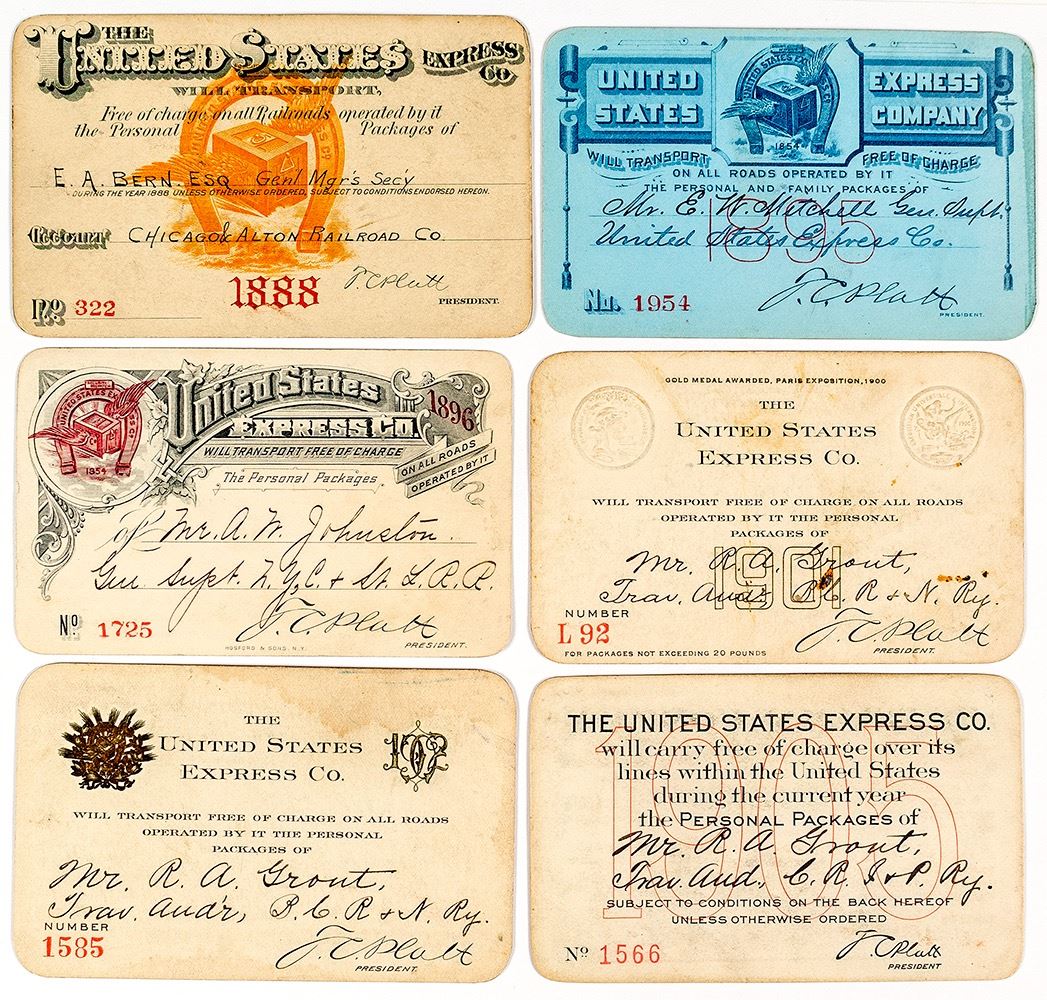 THE
UNITED STATES EXPRESS CO.
WILL TRANSPORT,
Free of charge on all Railroads operated by it
the Personal Packages of
E. A. BERN. ESQ Genl Mgr's Secy
DURING THE YEAR 1888 UNLESS OTHERWISE ORDERED, SUBJECT TO CONDITIONS ENDORSED HEREON.
Account CHICAGO & ALTON RAILROAD CO.
1888 T. C. Platt
No 322 PRESIDENT.
UNITED STATES EXPRESS COMPANY
UNITED STATES EXPRESS CO.
1854
WILL TRANSPORT FREE OF CHARGE
ON ALL ROADS OPERATED BY IT
THE PERSONAL AND FAMILY PACKAGES OF
Mr. E. W. Mitchell Gen. Supt.
United States Express Co.
1895
T. C. Platt
No. 1954 PRESIDENT.
United States
EXPRESS CO.
1896
UNITED STATES EXPRESS CO
1854
WILL TRANSPORT FREE OF CHARGE
ON ALL ROADS
OPERATED BY IT
The Personal Packages
of Mr. A. W. Johnston.
Gen. Supt. N. Y. C. & St. L. R. R.
No. 1725 T. C. Platt
PRESIDENT.
HOSFORD & SONS, N.Y.
GOLD MEDAL AWARDED, PARIS EXPOSITION, 1900
THE
UNITED STATES
EXPRESS CO.
WILL TRANSPORT FREE OF CHARGE ON ALL ROADS
OPERATED BY IT THE PERSONAL
PACKAGES OF
Mr. R. A. Grout,
1901
Trav. Aud'r B. C. R & N. Ry.
NUMBER
L 92 T. C. Platt
PRESIDENT.
FOR PACKAGES NOT EXCEEDING 20 POUNDS
THE
UNITED STATES
EXPRESS CO.
1902
WILL TRANSPORT FREE OF CHARGE ON ALL ROADS
OPERATED BY IT THE PERSONAL
PACKAGES OF
Mr. R. A. Grout,
Trav. Aud'r, B. C. R & N. Ry.
NUMBER
1585 T. C. Platt
PRESIDENT.
THE UNITED STATES EXPRESS CO.
will carry free of charge over its
lines within the United States
during the current year
the PERSONAL PACKAGES of
1905
Mr. R. A. Grout,
Trav. Aud., C. R. I & P. Ry.
SUBJECT TO CONDITIONS ON THE BACK HEREOF
UNLESS OTHERWISE ORDERED
No 1566 T. C. Platt
PRESIDENT